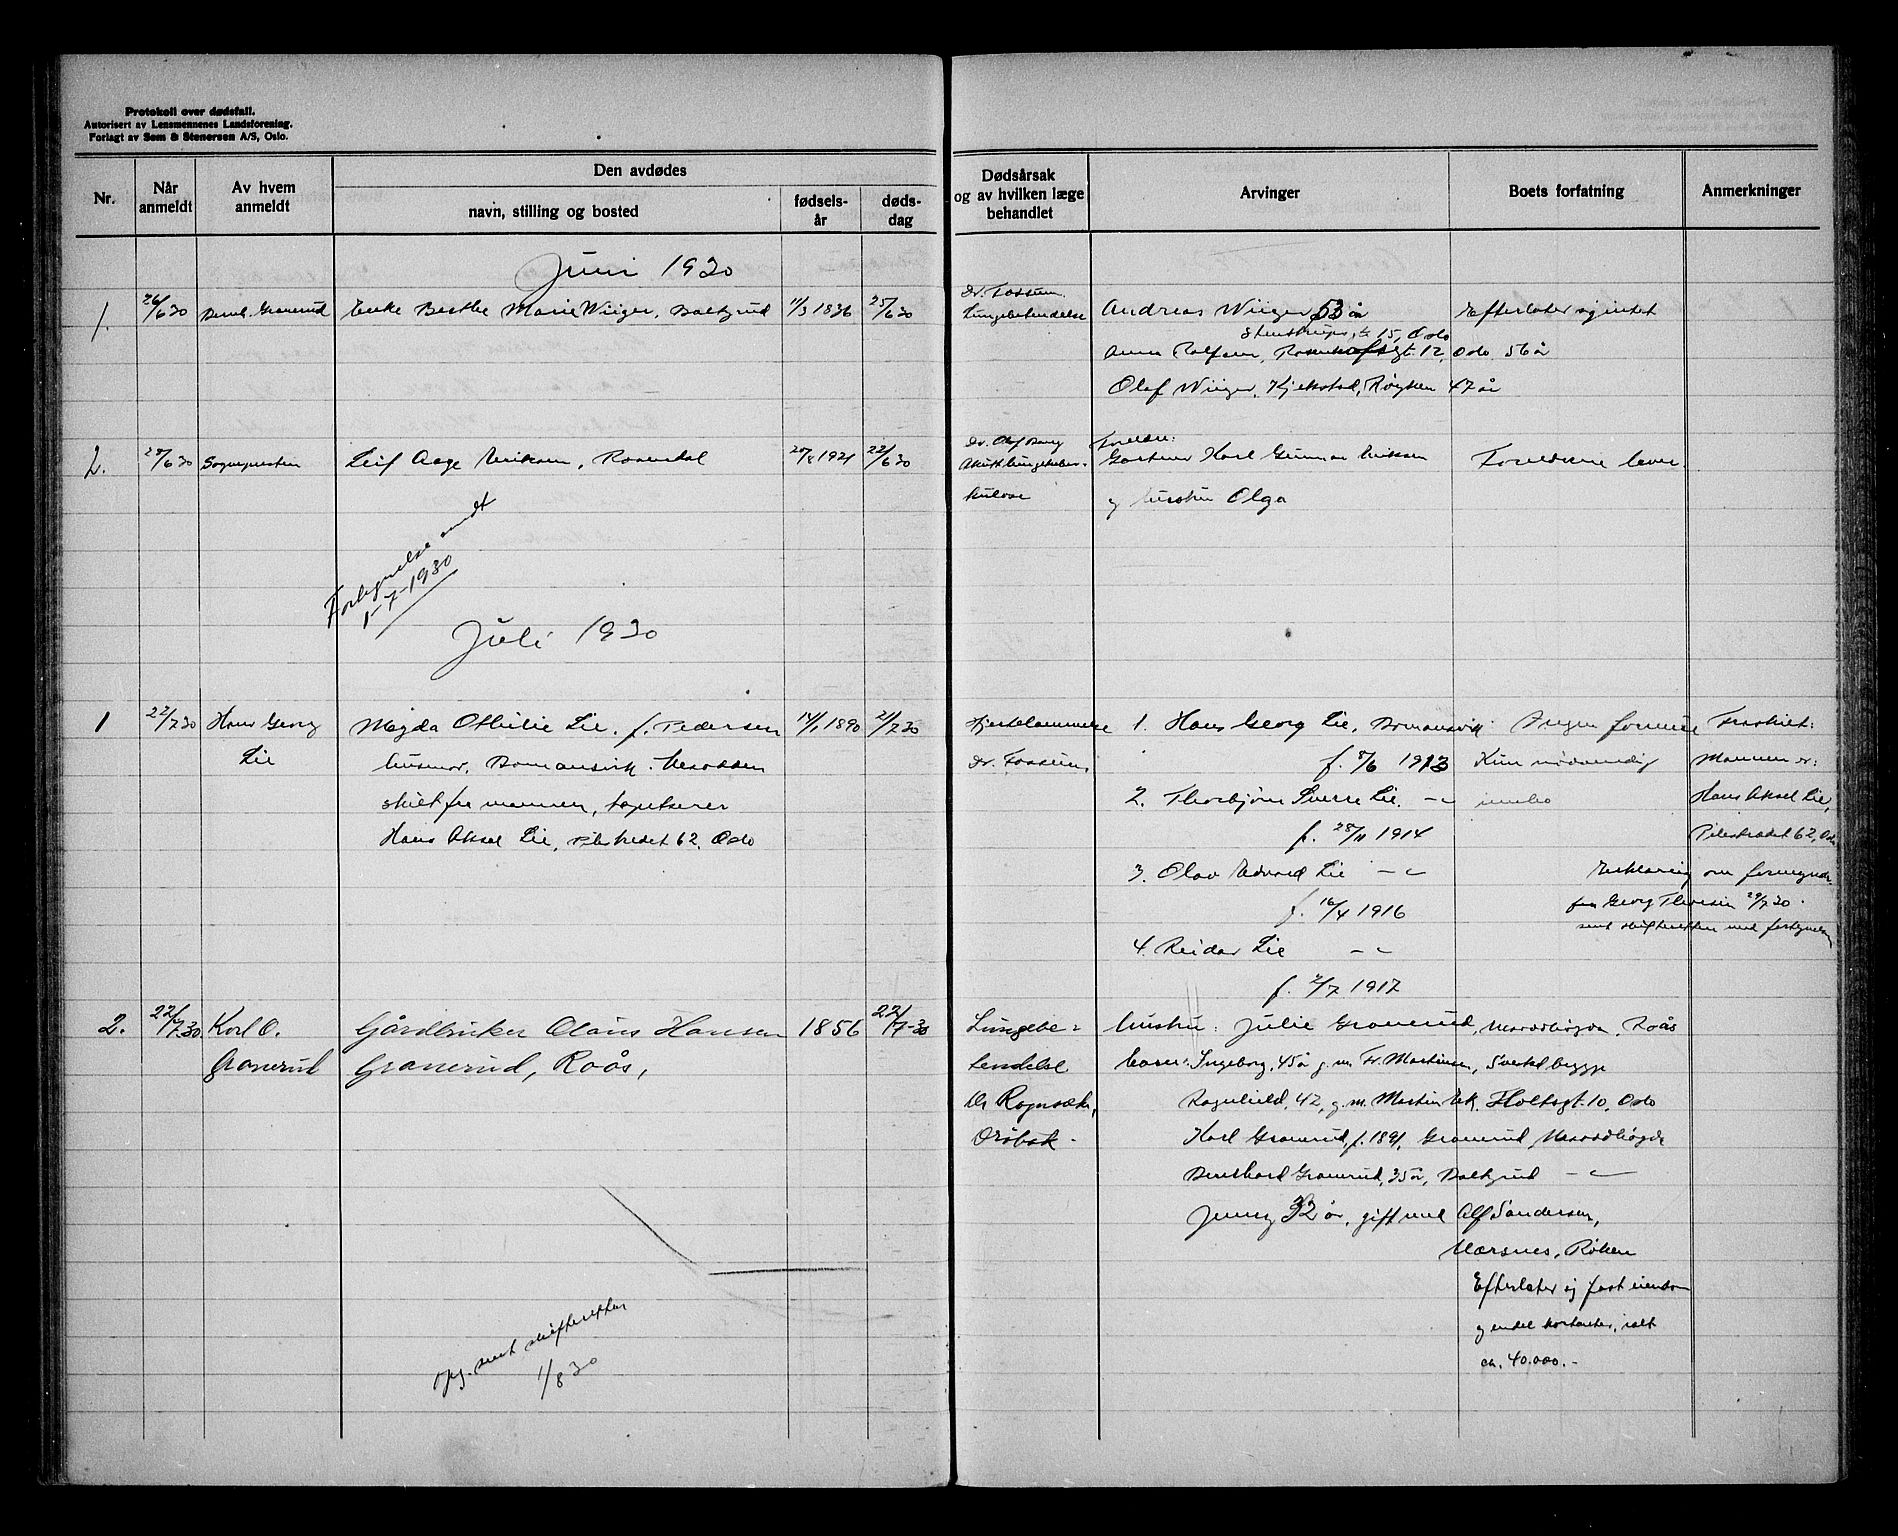 Protokoll over dødsfall.
Autorisert av Lensmennenes Landsforening.
Forlagt av Sem & Stenersen A/S, Oslo.
Nr.
Når anmeldt
Av hvem anmeldt
Den avdødes
navn, stilling og bosted
fødselsår
dødsdag
Dødsårsak og av hvilken læge behandlet
Arvinger
Boets forfatning
Anmerkninger
Juni 1930
1. 26/6 30 Bernh. Granerud Enke Berthe Marie Wiiger, Baltzrud 11/3 1836 25/6 30
Dr. Fossum
Lungebetendelse
Andreas Wiiger 53 år
15, Oslo
Anna 12, Oslo 56 år
Olaf Wiiger, Kjekstad, Røyken 47 år
Efterlater sig intet
2. 27/6 30 Sognepresten Leif Aage Eriksen, Rosendal 1921 22/6 30
Dr. Olaf Bang
Akutt lungetuber-
kulose
Foreldre:
Gartner Karl Gunnar Eriksen
og hustru Olga
Foreldrene lever.
Fortegnelse sendt
1-7-1930
Juli 1930
1 22/7 30 Hans Georg
Lie
Magda Othilie Lie, f. Pedersen
husmor, Bomansvik, Nesodden
skilt fra mannen, tapetserer
Hans Aksel Lie, Pilestredet 62, Oslo
14/1 1890 21/7 30
Hjertelammelse
dr. Fossum,
1. Hans Georg Lie, Bomansvik
f. 8/6 1913
2. Thorbjørn Sverre Lie. -"-
f. 28/11 1914
3. Olav Edvard Lie -"-
f. 16/4 1916
4. Reidar Lie -"-
f. 2/7 1917
Ingen formue
Kun nødvendig
innbo
Fraskilt:
Mannen er:
Hans Aksel Lie,
Pilestredet 62, Oslo
Erklæring om formynder
fra Georg 29/7 30.
sendt skifteretten med fortegnelsen
2. 22/7-30. Karl O.
Granerud
Gårdbruker Olaus Hansen
Granerud, Roås,
1856 22/7-30
Lungebe-
tendelse
Dr Rognsæth,
Drøbak.
Hustru: Julie Granerud, Nesoddhøgda, Roås
barn: Ingeborg, 45 år g. m. Fr. Martinsen, Svestad brygge
Ragnhild, 42, g. m. Martin Ek. Holtsgt. 10, Oslo
Karl Granerud, f. 1891, Granerud, Nesoddhøgda
Bernhard Granerud, 35 år, Baltzrud -"-
Jenny 32 år, gift med Alf Sandersen,
Nærsnes, Røken
Efterlater sig fast eiendom
og endel kontanter, ialt
ca. 40.000.-
opg. sendt skifteretten
1/8 30